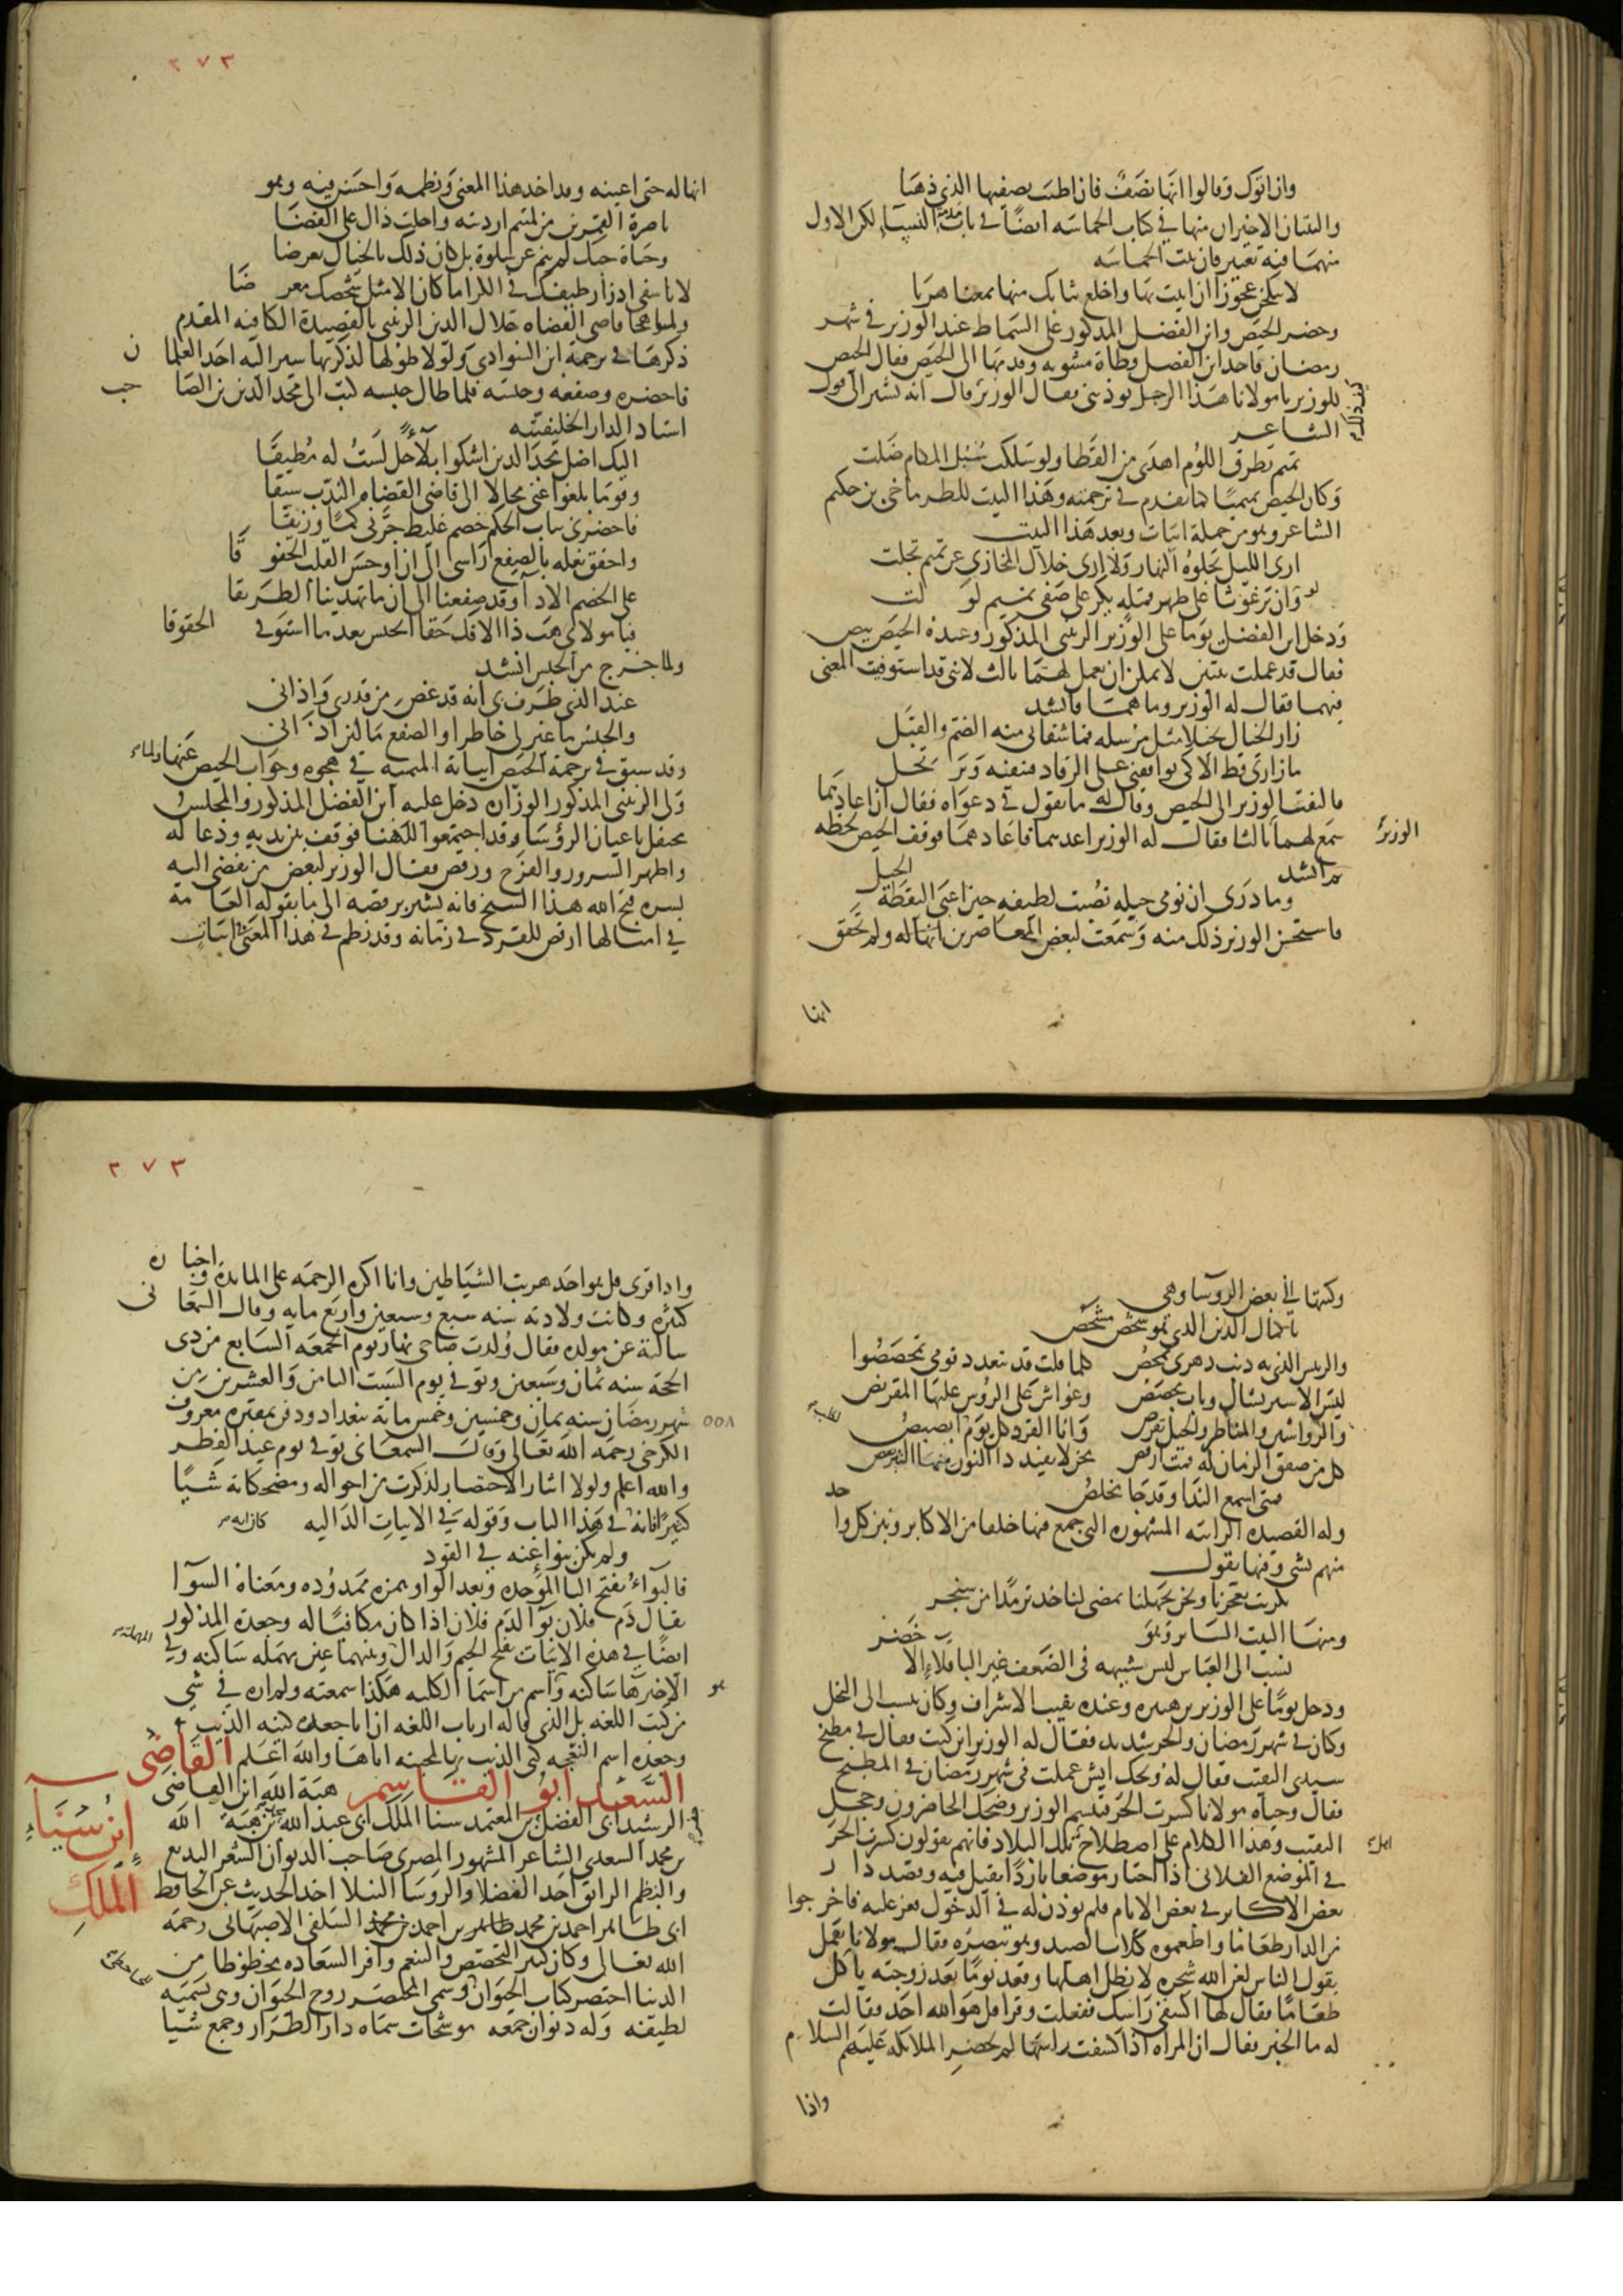 وان اتوك وقالوا انها نصف فان اطيب نصفيها الذي ذهبا
والبيتان الاخيران منها في كتاب الحماسه ايضا في باب مذمة النسا لكن الاول
منهما فيه تغيير فان بيت الحماسه
لا تنكحن عجوزا ان اتيت بها واخلع ثيابك منها ممعنا هربا
وحضر الحيص وابن الفضل المذكور على السماط عند الوزير في شهر
رمضان فاخذ ابن الفضل قطاة مشويه وقدمها الى الحيص فقال الحيص
للوزير يا مولانا هذا الرجل يوذيني فقال الوزير كيف ذلك قال انه يشير الى قول
الشاعر
تميم بطرق اللوم اهدى من القطا ولو سلكت سبل المكارم ضلت
وكان الحيص تميميا كما تقدم في ترجمته وهذا البيت للطرماح بن حكيم
الشاعر وهو من جملة ابيات وبعد هذا البيت
ارى الليل يجلوه النهار ولا ارى خلال المخازي عن تميم تجلت
ولو ان برغوثا على ظهر قمله يكر على صفي تميم لولت
ودخل ابن الفضل يوما على الوزير الزينبي المذكور وعنده الحيص بيص
فقال قد عملت بيتين لا يمكن ان يعمل لهما ثالث لانني قد استوفيت المعنى
فيهما فقال له الوزير وما هما فانشد
زار الخيال بخيلا مثل مرسله فما شفاني منه الضم والقبل
ما زارني قط الا كي يوافقني على الرقاد فينفيه ويرتحل
فالتفت الوزير الى الحيص وقال له ما تقول في دعواه فقال ان اعادهما
سمع الوزير لهما ثالثا فقال له الوزير اعدهما فاعادهما فوقف الحيص لحظه
ثم انشد
وما درى ان نومي حيله نصبت لطيفه حين اعيى اليقظة الحيل
فاستحسن الوزير ذلك منه وسمعت لبعض المعاصرين انها له ولم تحقق
انها
٢٧٣
انها له حتى اعينه وقد اخذ هذا المعنى ونظمه واحسن فيه وهو
يا ضرة القمرين من لمتيم ارديته واحلت ذاك على القضا
وحياة حبك لم ينم عن سلوة بل كان ذلك بالخيال تعرضا
لا تاسفي ان زار طيفك في الكرا ما كان الا مثل شخصك معرضا
ولما هجا قاضي القضاه جلال الدين الزينبي بالقصيدة الكافيه المقدم
ذكرها في ترجمة ابن السوادي ولولا طولها لذكرتها سير اليه احد الغلمان
فاحضره وصفعه وحبسه فلما طال حبسه كتب الى مجد الدين بن الصاحب
استاد الدار الخليفتيه
اليك اظل مجد الدين اشكوا بلاء حل لست له مطيقا
وقوما بلغوا عني محالا الى قاضي القضاه الندب سيقا
فاحضرني بباب الحكم خصم غليظ جرني كما وزيقا
واخفق نعله بالصفع راسي الى ان اوجس القلب الخفوقا
على الخصم الادا وقد صفعنا الى ان ما تهدينا الطريقا
فيا مولاي هب ذا الافك حقا ايحبس بعد ما استوفي الحقوقا
ولما خرج من الحبس انشد
عند الذي طرف بي انه قد غض من قدري واذاني
والحبس ما غير لي خاطرا والصفع ما لين اذاني
وقد سبق في ترجمة الحيص ابياته الميميه في هجوه وجواب الحيص عنها ولما
ولى الزينبي المذكور الوزاره دخل عليه ابن الفضل المذكور والمجلس
محتفل باعيان الروسا وقد اجتمعوا للهنا فوقف بين يديه ودعا له
واظهر السرور والفرح ورقص فقال الوزير لبعض من يفضي اليه
بسره قبح الله هذا الشيخ فانه يشير برقصه الى ما يقوله العامة
في امثالها ارقص للقرد في زمانه وقد نظم في هذا المعنى ابيات
وكتبها الى بعض الروسا وهي
يا كمال الدين الذي هو شخص مشخص
والريس الذي به ذنب دهري يمحص كلما قلت قد تبغدد قومي تحصصوا
ليس الا ستر يشال وباب مجصص وغواش على الروس عليها المقرنص
والرواشين والمناظر والخيل ترقص وانا القرد كل يوم ابصبص
كل من صفق الزمان له قمت ارقص
متى اسمع الندا وقد جا مخلص
وله القصيده الرائيه المشهوره التي جمع فيها خلقا من الاكابر ونبز كل واحد
منهم بشي وفيها يقول
تكريت تعجزنا ونحن بجهلنا نمضي لناخذ ترمذا من سنجر
ومنها البيت الساير وهو
نسب الى العباس ليس شبيهه في الضعف غير الباقلاء الاخضر
ودخل يوما على الوزير بن هبيره وعنده نقيب الاشراف وكان ينسب الى البخل
وكان في شهر رمضان والحر شديد فقال له الوزير اين كنت فقال في مطبخ
سيدي النقيب فقال له ويحك ايش عملت في شهر رمضان في المطبخ
فقال وحياه مولانا كسرت الحر فتبسم الوزير وضحك الحاضرون وخجل
النقيب وهذا الكلام على اصطلاح اهل تلك البلاد فانهم يقولون كسرت الحر
في الموضع الفلاني اذا اختار موضعا باردا يقيل فيه وقصد دار
بعض الاكابر في بعض الايام فلم يوذن له في الدخول فعز عليه فاخرجوا
من الدار طعاما واطعموه كلاب الصيد وهو يبصره فقال مولانا يعمل
بقول الناس لعن الله شجره لا تظل اهلها وقعد يوما بعد زوجته ياكل
طعاما فقال لها اكشفي راسك ففعلت وقرا قل هو الله احد فقالت
له ما الخبر فقال ان المراه اذا كشفت راسها لم تحضر الملائكه عليهم السلام
واذا
٢٧٣
واذا قرى قل هو الله احد هربت الشياطين وانا اكره الزحمه على المايدة واخباره
كثيره وكانت ولادته سنه سبع وسبعين واربع مايه وقال السمعاني
سالته عن مولده فقال ولدت ضاحي نهار يوم الجمعه السابع من ذي
الحجه سنه ثمان وسبعين وتوفي يوم السبت الثامن والعشرين من
شهر رمضان سنه ثمان وخمسين وخمس مايه ببغداد ودفن بمقبره معروف
٥٥٨
الكرخي رحمه الله تعالى وقال السمعاني توفي يوم عيد الفطر
والله اعلم ولولا ايثار الاختصار لذكرت من احواله ومضحكاته شيا
كثيرا فانه كان ايه في هذا الباب وقوله في الابيات الداليه
ولم يكن بواء عنه في القود
فالبواء بفتح الباء الموحده وبعد الواو همزه ممدوده ومعناه السوا
يقال دم فلان بوا لدم فلان اذا كان مكافيا له وجعدة المذكور
ايضا في هذه الابيات بفتح الجيم والدال المهملة وبينهما عين مهمله ساكنه وفي
الاخر ها ساكنه وهو اسم من اسما الكلبه هكذا سمعته ولم اره في شي
من كتب اللغه بل الذي قاله ارباب اللغه ان ابا جعده كنيه الذيب
وجعده اسم النعجه كني الذيب بها لمحبته اياها والله اعلم القاضي
السعيد ابو القاسم هبة الله ابن القاضي
ابن سناء الملك
الرشيد ابي الفضل بن المعتمد سنا الملك ابي عبد الله بن هبة الله
بن محمد السعدي الشاعر المشهور المصري صاحب الديوان الشعر البديع
والنظم الرائق احد الفضلا والروسا النبلا اخذ الحديث عن الحافظ
ابي طاهر احمد بن محمد بن احمد بن محمد السلفي الاصبهاني رحمه
الله تعالى وكان كثير التخصص والتنعم وافر السعاده محظوظا من
الدنيا اختصر كتاب الحيوان وسمى المختصر روح الحيوان وهي تسميه
لطيفه وله ديوان جمعه موشحات سماه دار الطراز وجمع شيا